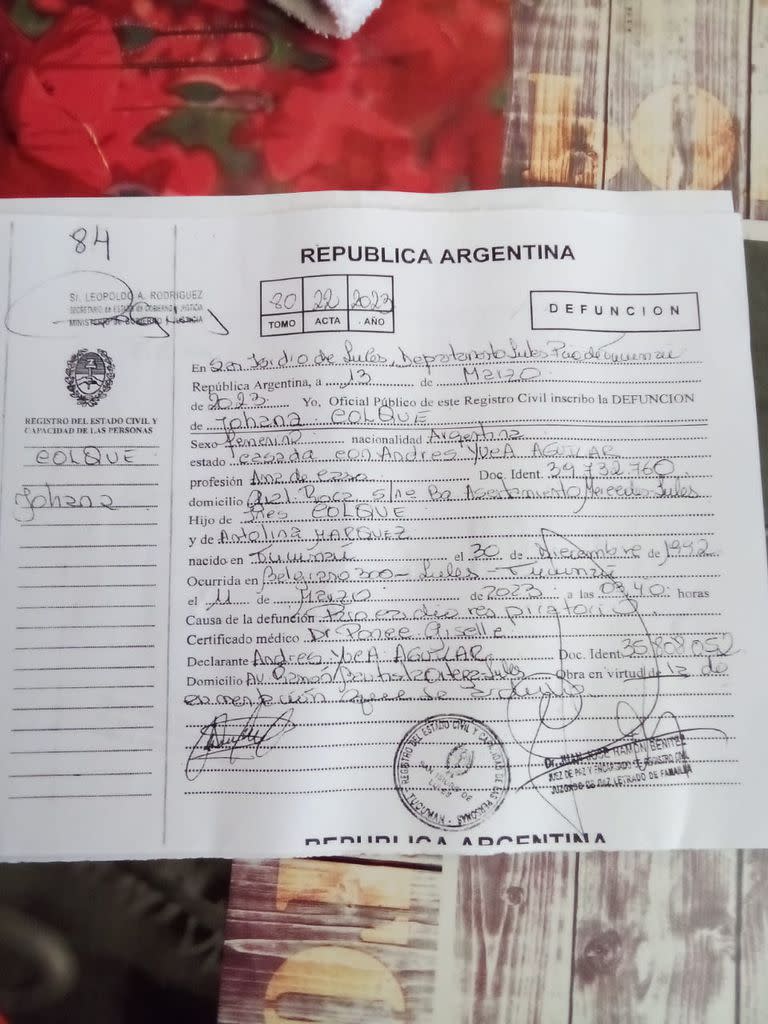 84
REPUBLICA ARGENTINA
Sr. LEOPOLDO A. RODRIGUEZ
SECRETARIO de ESTADO de GOBIERNO y JUSTICIA
MINISTERIO de GOBIERNO y JUSTICIA
80 22 2023
TOMO ACTA AÑO
DEFUNCION
REGISTRO DEL ESTADO CIVIL Y
CAPACIDAD DE LAS PERSONAS
COLQUE
Johana
En San Isidro de Lules, Departamento Lules Pcia de Tucumán
República Argentina, a 13 de Marzo
de 2023 Yo, Oficial Público de este Registro Civil inscribo la DEFUNCION
de Johana COLQUE
Sexo femenino nacionalidad Argentina
estado Casada con Andres YveA AGUILAR
profesión Ama de casa Doc. Ident. 39.732.760
domicilio Gral. Roca s/nº Bº Asentamiento Mercedes Lules
Hijo de COLQUE
y de Antolina MARQUEZ
nacido en Tucumán el 30 de Diciembre de 1992
Ocurrida en Belgrano 300 - Lules - Tucumán
el 11 de Marzo de 2023 a las 03,40 horas
Causa de la defunción Paro cardio respiratorio
Certificado médico Dr. Ponce Giselle
Declarante Andres YveA AGUILAR Doc. Ident. 35.808.052
Domicilio Av. Ramón Bautista Ortega Lules Obra en virtud de
que se
REGISTRO DEL ESTADO CIVIL Y CAPACIDAD DE LAS PERSONAS
SAN ISIDRO DE
LULES
Dr. JUAN JOSE RAMON BENITEZ
JUEZ DE PAZ Y ENCARGADO DE REGISTRO CIVIL
JUZGADO DE PAZ LETRADO DE FAMAILLA
REPUBLICA ARGENTINA